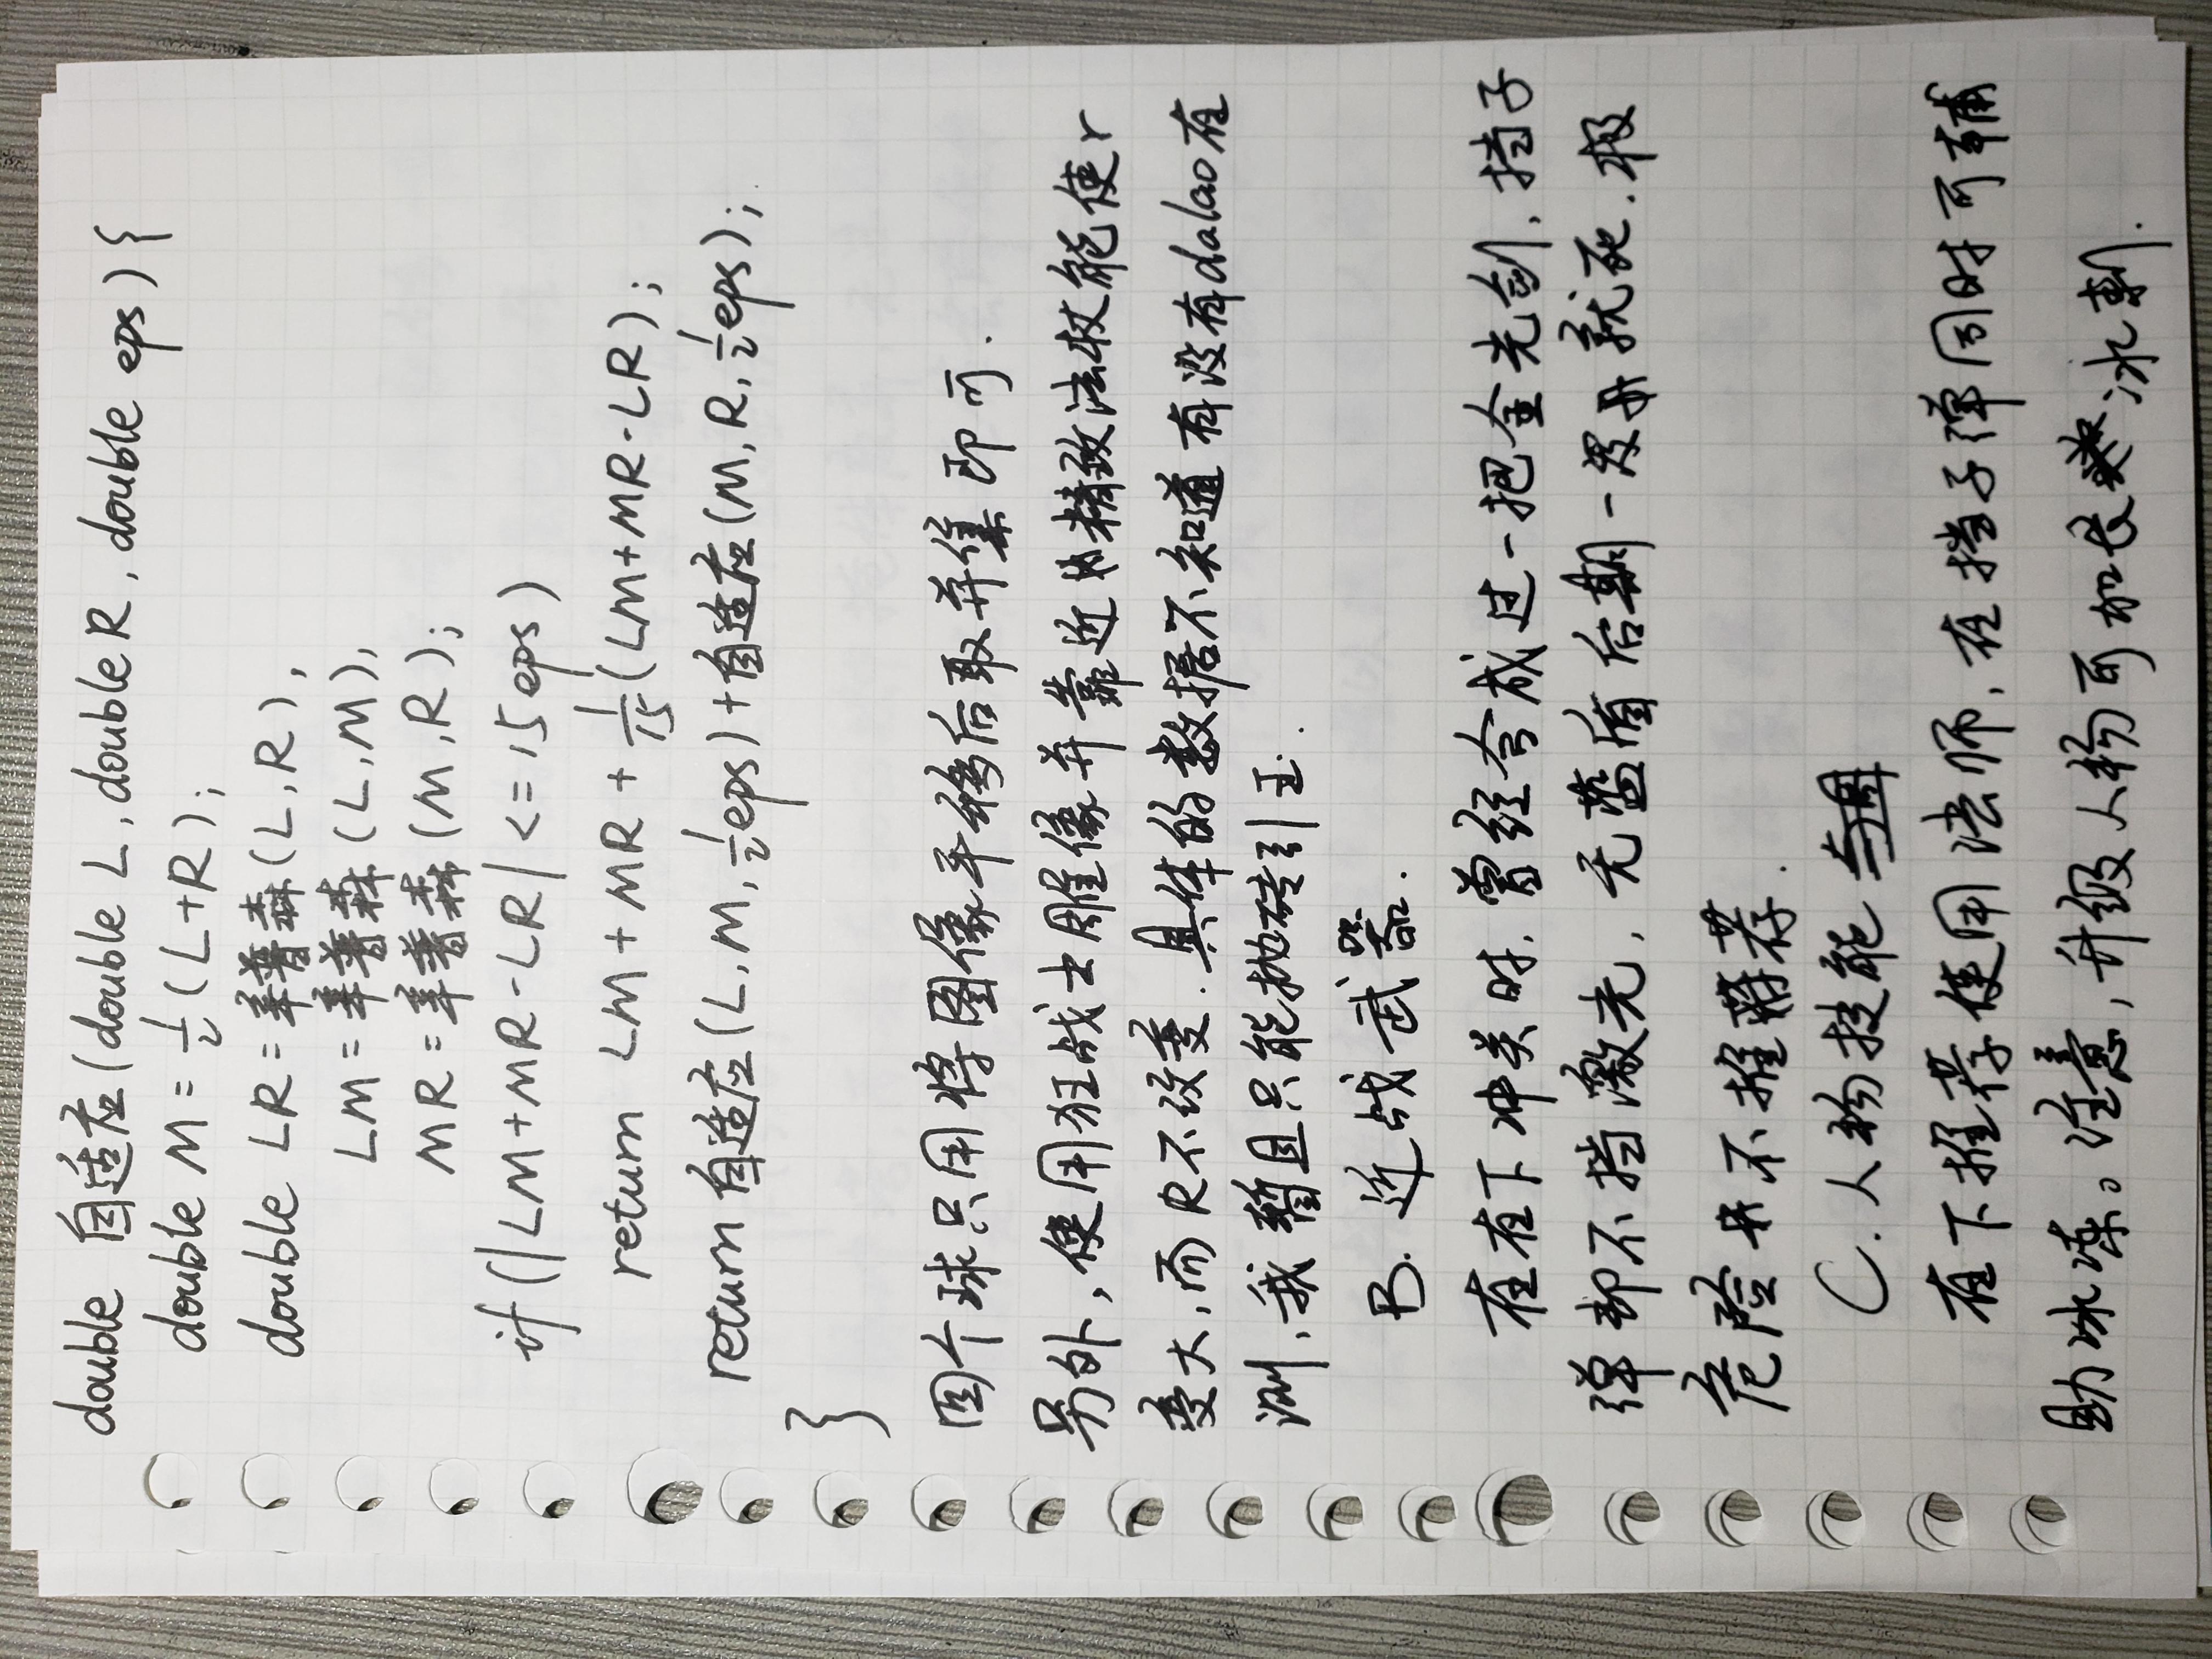 double 自适应(double L, double R, double eps){
double M = ½(L+R);
double LR = 辛普森(L,R),
LM = 辛普森(L,M),
MR = 辛普森(M,R);
if(|LM+MR-LR|<=15eps)
return LM+MR+1/15(LM+MR-LR);
return 自适应(L,M,½eps)+自适应(M,R,½eps);
}
回个球只用将图像平移后取并集即可.
另外,使用狂战士雕像并靠近精致法杖能使r
变大,而R不改变.具体的数据不知道有没有dalao在
测,我暂且只能抛砖引玉.
B.近战武器.
在在下冲关时,曾经合成过一把金光剑,挡子
弹却不挡激光,无蓝盾后期一没就死.极
危险并不推荐.
C.人物技能
在下推荐使用法师,在挡子弹同时可辅
助冰冻。注意,升级人物可加长冰刺.